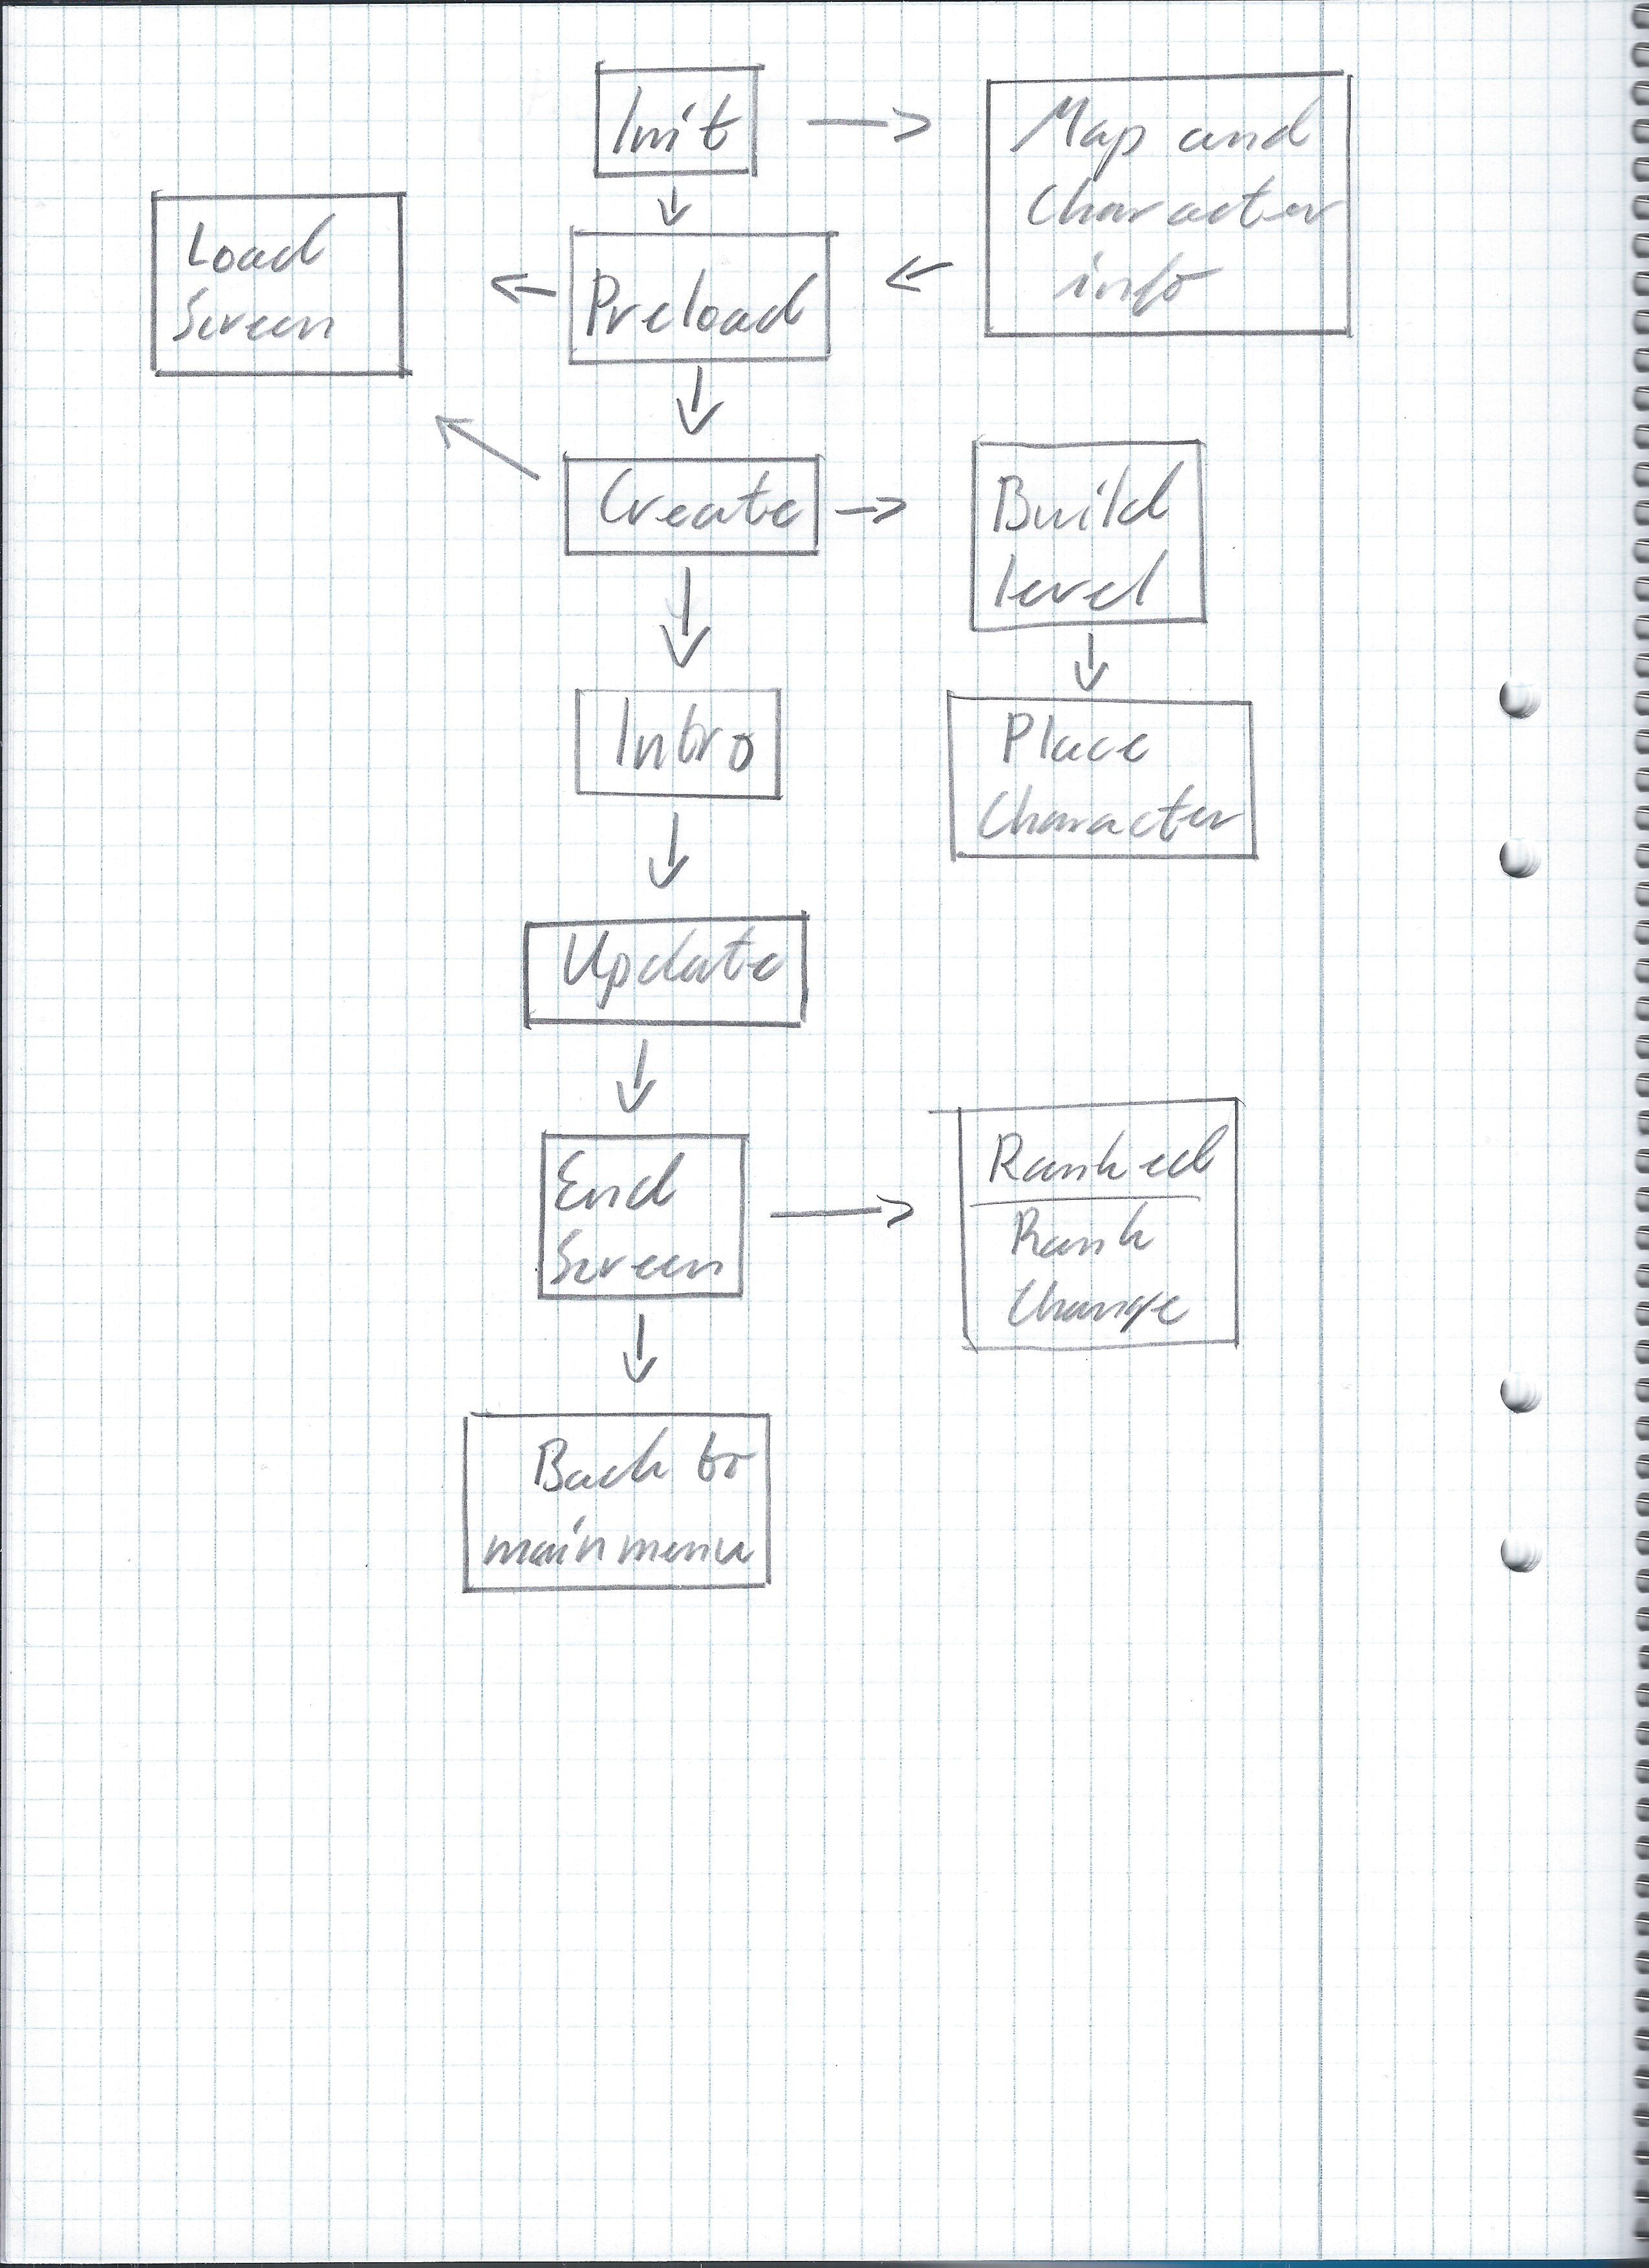 Init
Map and
Character
info
Load
Screen
Preload
Create
Build
level
Intro
Place
Character
Update
End
Screen
Ranked
Rank
Change
Back to
main menu